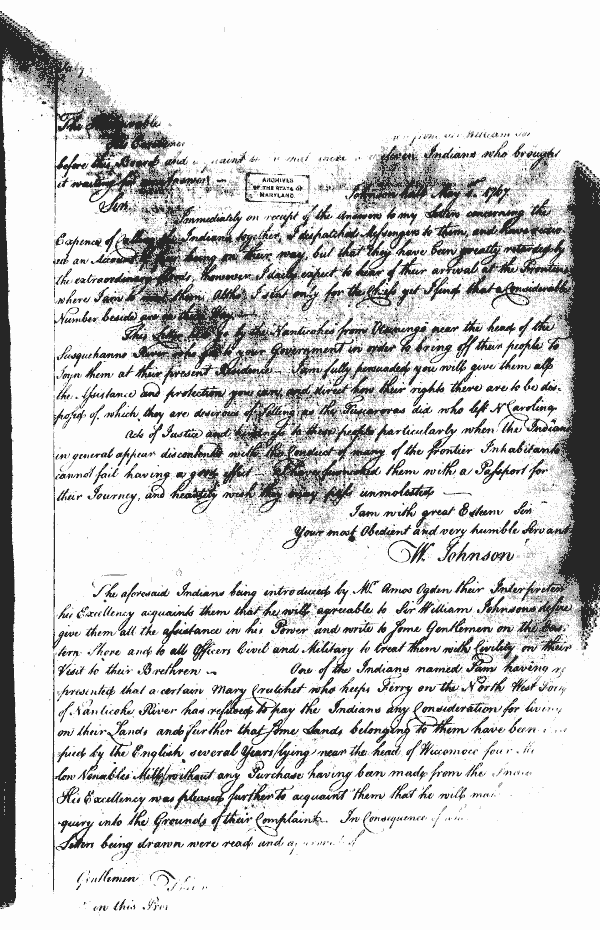 The
His Excellency
from Sir William
before this Board and eleven Indians who brought
it waiting for an Answer
ARCHIVES
OF THE STATE OF
MARYLAND
Johnson hall May 1. 1767
Sir
Immediately on receipt of the Answers to my Letters concerning the
Expence of calling the Indians together, I dispatched Messengers to them, and have receiv
ed an Account of their being on their way, but that they have been greatly retarded by
the extraordinary floods, however I daily expect to hear of their arrival at the Frontiers
where I am to meet them, Altho' I sent only for the Chiefs yet I find that a Considerable
Number beside are on their Way.
This Letter by the Nanticokes from near the head of the
Susquehanna River who go to your Government in order to bring off their people to
Joyn them at their present Residence I am fully persuaded you will give them all
the Assistance and protection you can, and direct how their rights there are to be dis-
posed of which they are desirous of selling as the Tuscaroras did who left N Carolina
Acts of Justice and kindness to these people particularly when the Indians
in general appear discontented with the Conduct of many of the frontier Inhabitants
cannot fail having a good effect I have furnished them with a Passport for
their Journey, and heartily wish they may pass unmolested
I am with great Esteem Sir
Your most Obedient and very humble Servant
W. Johnson
The aforesaid Indians being introduced by Mr. Amos Ogden their Interpreter
his Excellency acquaints them that he will agreable to Sir William Johnsons desire
give them all the assistance in his Power and write to some Gentlemen on the Eas-
tern Shore and to all Officers Civil and Military to treat them with Civility on their
Visit to their Brethren One of the Indians named Pam having re
presented that a certain Mary Crutchet who keeps Ferry on the North West Fork
of Nanticoke River has refused to pay the Indians any Consideration for living
on their Lands and further that some Lands belonging to them have been
pied by the English several Years lying near the head of Wicomoco
Venables Mill without any Purchase having been made from the Indians
His Excellency was pleased further to acquaint them that he will make
quiry into the Grounds of their Complaint. In Consequence of
Letters being drawn were read and approved of
Gentlemen
in this